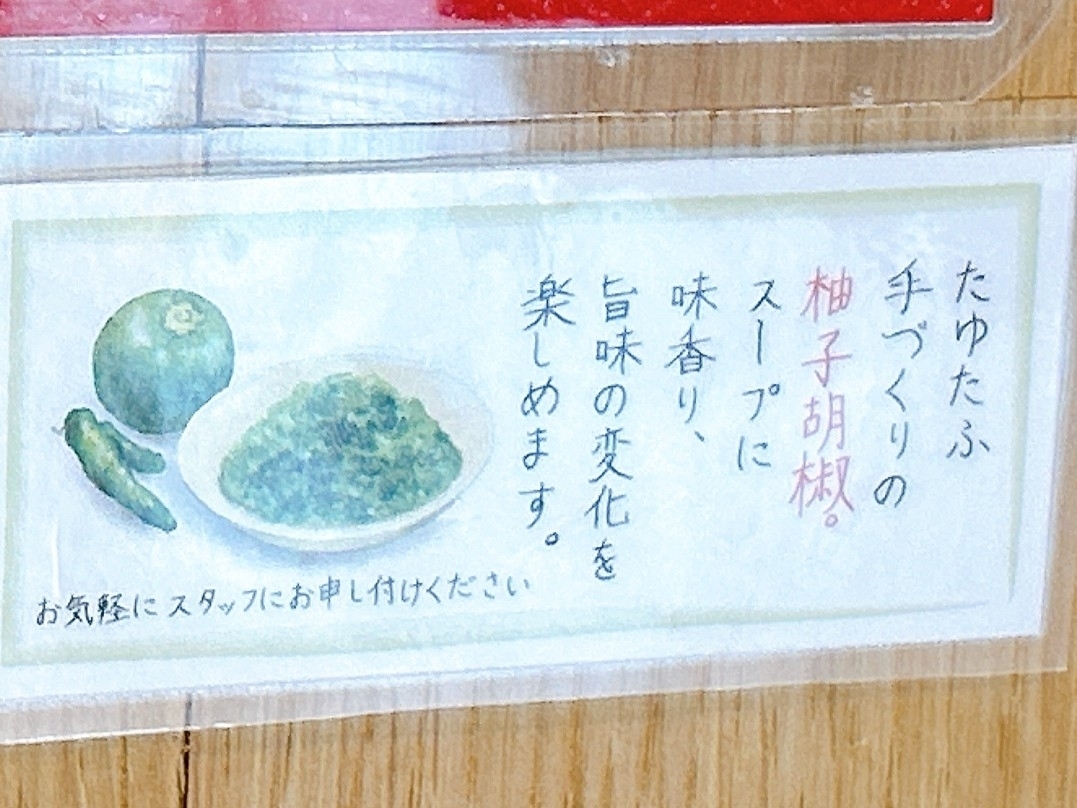 たゆたふ
手づくりの
柚子胡椒。
スープに
味香り、
旨味の変化を
楽しめます。
お気軽に スタッフにお申し付けください